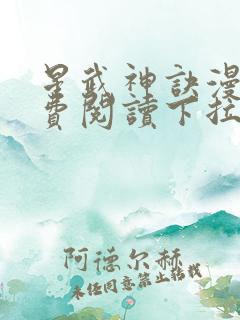 星武神訣漫
費閱讀下拉
阿德尔赫
未经同意禁止转载